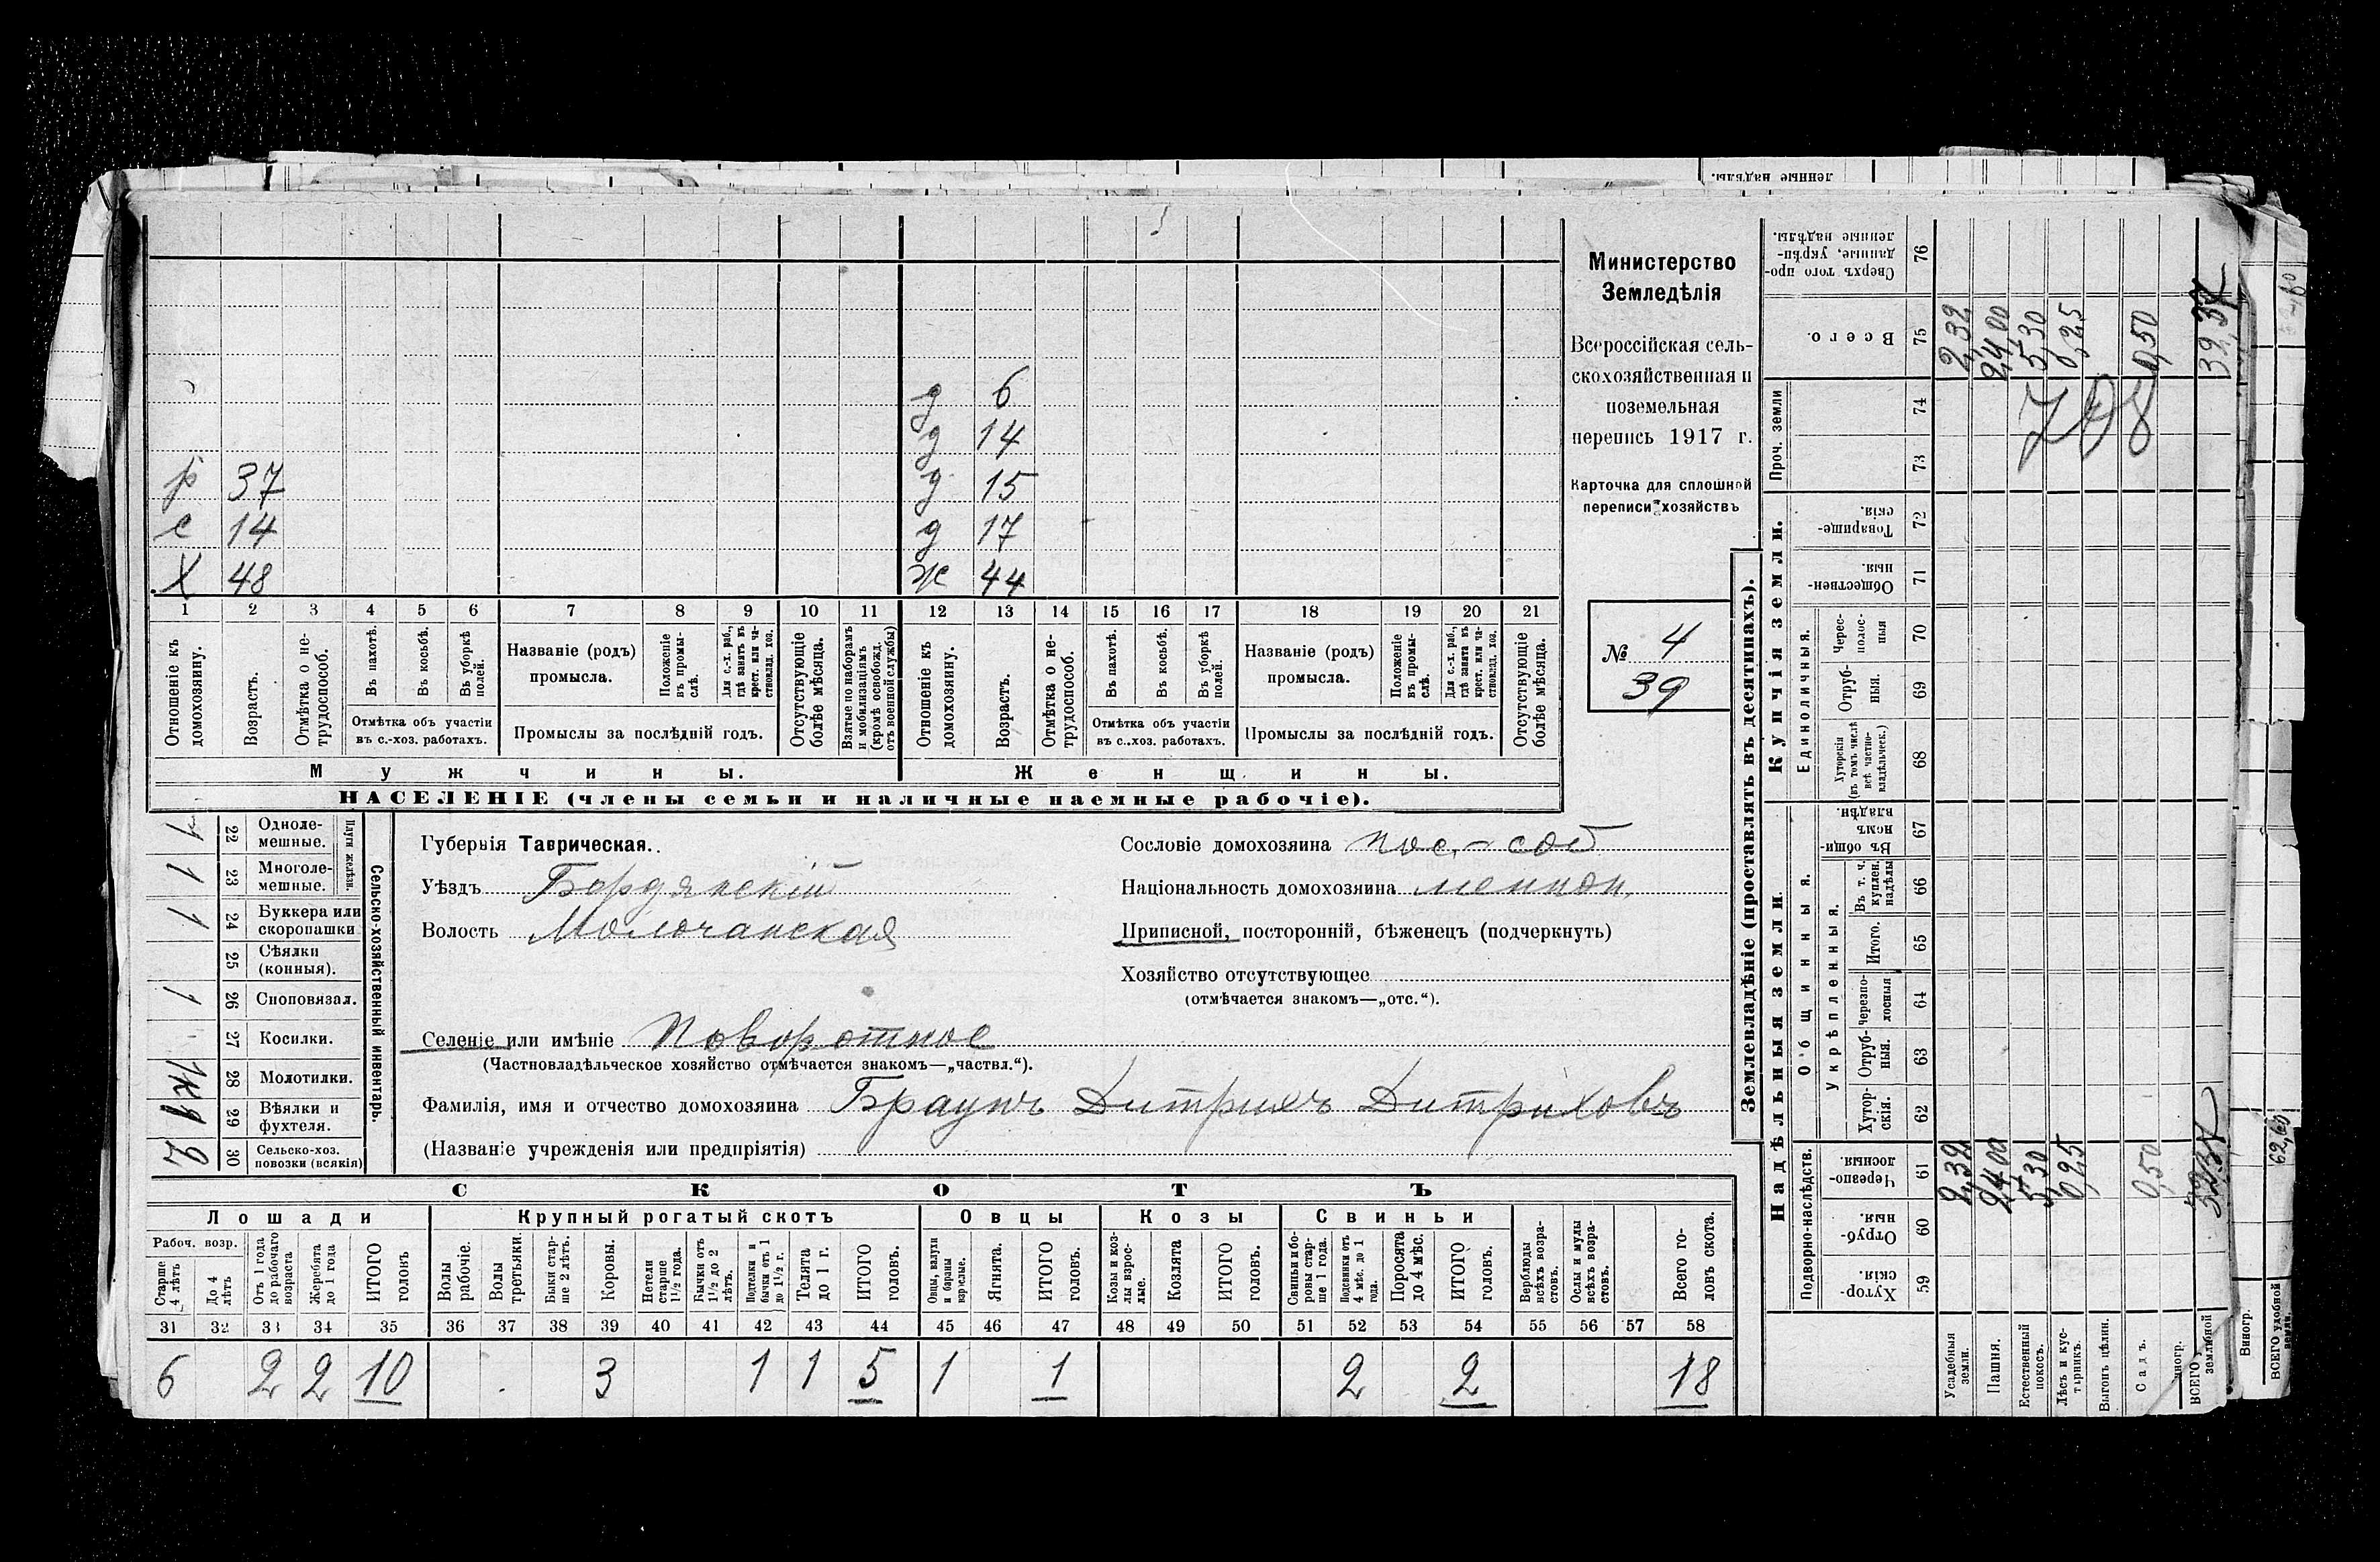 ленные надѣлы.
д 6
д 14
р 37 д 15
с 14 д 17
Х 48 ж 44
1 2 3 4 5 6 7 8 9 10 11 12 13 14 15 16 17 18 19 20 21
Отношеніе къ домохозяину.
Возрастъ.
Отмѣтка о не-трудоспособ.
Въ пахотѣ.
Въ косьбѣ.
Въ уборкѣ полей.
Отмѣтка объ участіи въ с.-хоз. работахъ.
Названіе (родъ) промысла.
Положеніе въ промы-слѣ.
Для с.-х. раб., гдѣ занятъ въ крест. или ча-стновлад. хоз.
Промыслы за послѣдній годъ.
Отсутствующіе болѣе мѣсяца.
Взятые по наборамъ и мобилизаціямъ (кромѣ освобожд. отъ военной службы)
Отношеніе къ домохозяину.
Возрастъ.
Отмѣтка о не-трудоспособ.
Въ пахотѣ.
Въ косьбѣ.
Въ уборкѣ полей.
Отмѣтка объ участіи въ с.-хоз. работахъ.
Названіе (родъ) промысла.
Положеніе въ промы-слѣ.
Для с.-х. раб., гдѣ занята въ крест. или ча-стновлад. хоз.
Промыслы за послѣдній годъ.
Отсутствующіе болѣе мѣсяца.
Мужчины.
Женщины.
НАСЕЛЕНІЕ (члены семьи и наличные наемные рабочіе).
Министерство
Земледѣлія
Всероссійская сель-
скохозяйственная и
поземельная
перепись 1917 г.
Карточка для сплошной
переписи хозяйствъ
№ 4
39
Сельско-хозяйственный инвентарь.
Плуги желѣзн.
1 22 Одноле-мешные.
1 23 Многоле-мешные.
1 24 Буккера или скоропашки
25 Сѣялки (конныя).
1 26 Сноповязал.
27 Косилки.
1к 28 Молотилки.
1 29 Вѣялки и фухтеля.
2 30 Сельско-хоз. повозки (всякія)
Губернія Таврическая.
Уѣздъ Бердянскій
Волость Молочанская
Селеніе или имѣніе Поворотное
(Частновладѣльческое хозяйство отмѣчается знакомъ—„частвл.“).
Сословіе домохозяина пос.-соб
Національность домохозяина меннон.
Приписной, посторонній, бѣженецъ (подчеркнуть)
Хозяйство отсутствующее
(отмѣчается знакомъ—„отс.“).
Фамилія, имя и отчество домохозяина Браунъ Дитрихъ Дитриховъ
(Названіе учрежденія или предпріятія)
СКОТЪ
Лошади Крупный рогатый скотъ Овцы Козы Свиньи
Рабоч. возр.
Старше 4 лѣтъ
До 4 лѣтъ
Отъ 1 года до рабочаго возраста
Жеребята до 1 года
ИТОГО головъ
Волы рабочіе.
Волы третьяки.
Быки стар-ше 2 лѣтъ.
Коровы.
Нетели старше 1½ года.
Бычки отъ 1½ до 2 лѣтъ.
Подтелки и бычки отъ 1 до 1½ г.
Телята до 1 г.
ИТОГО головъ.
Овцы, валухи и бараны взрослые.
Ягнята.
ИТОГО головъ.
Козы и коз-лы взрос-лые.
Козлята
ИТОГО головъ.
Свиньи и бо-ровы стар-ше 1 года.
Подсвинки отъ 4 мѣс. до 1 года.
Поросята до 4 мѣс.
ИТОГО головъ.
Верблюды всѣхъ возра-стовъ.
Ослы и мулы всѣхъ возра-стовъ.
Всего го-ловъ скота.
31 32 33 34 35 36 37 38 39 40 41 42 43 44 45 46 47 48 49 50 51 52 53 54 55 56 57 58
6 2 2 10 3 1 1 5 1 1 2 2 18
Землевладѣніе (проставлять въ десятинахъ).
Надѣльныя земли.
Купчія земли.
Подворно-наслѣдств.
Общинныя.
Укрѣпленныя.
Единоличныя.
Проч. земли
Хутор-скія. 59
Отруб-ныя. 60
Черезпо-лосныя. 61
Хутор-скія. 62
Отруб-ныя. 63
Черезпо-лосныя 64
Итого. 65
Въ т. ч. куплен. надѣлы 66
Въ общин-номъ владѣн. 67
Хуторскія (въ томъ числѣ всѣ частно-владѣльческ.) 68
Отруб-ныя. 69
Черес-полос-ныя 70
Обществен-ныя. 71
Товарище-скія. 72
73
74
Всего. 75
Сверхъ того про-данные, укрѣп-ленные надѣлы. 76
Усадебныя земли. 2,32 2,32
Пашня. 24,00 24,00
Естественный покосъ. 5,30 5,30
Лѣсъ и кус-тарникъ. 0,25 0,25
Выгонъ цѣлин.
Садъ. 0,50 0,50
ВСЕГО
708
Виногр.
ВСЕГО удобной земли.